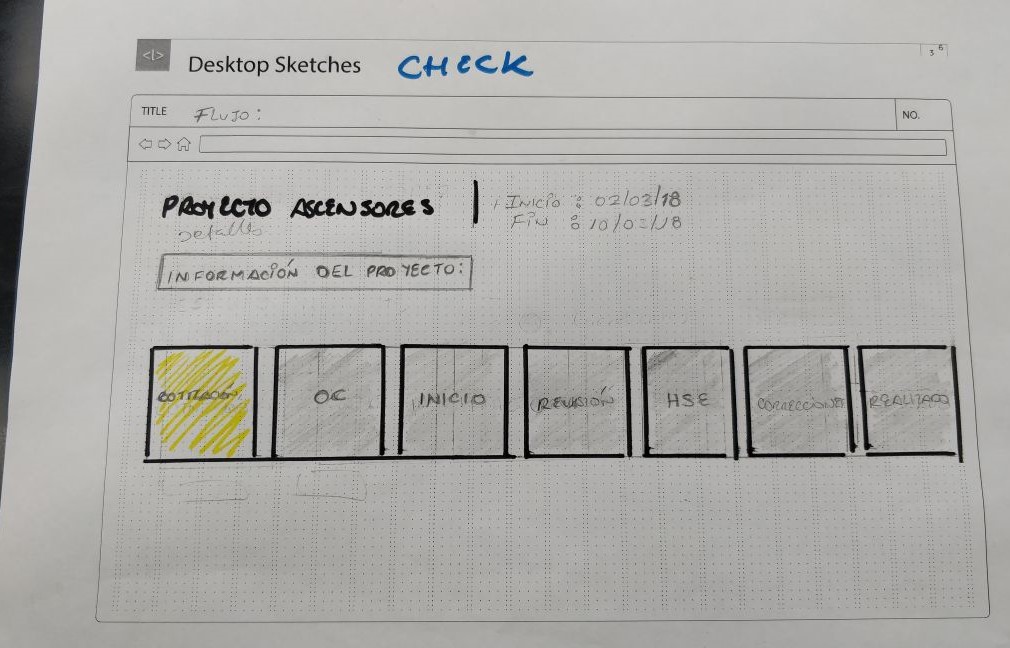 <|>
Desktop Sketches CHECK
3 6
TITLE Flujo:
NO.
PROYECTO ASCENSORES
Inicio : 02/03/18
Detalles
Fin :
INFORMACIÓN DEL PROYECTO:
COTIZACIÓN OC INICIO REVISIÓN HSE CORRECCIONES REALIZADO